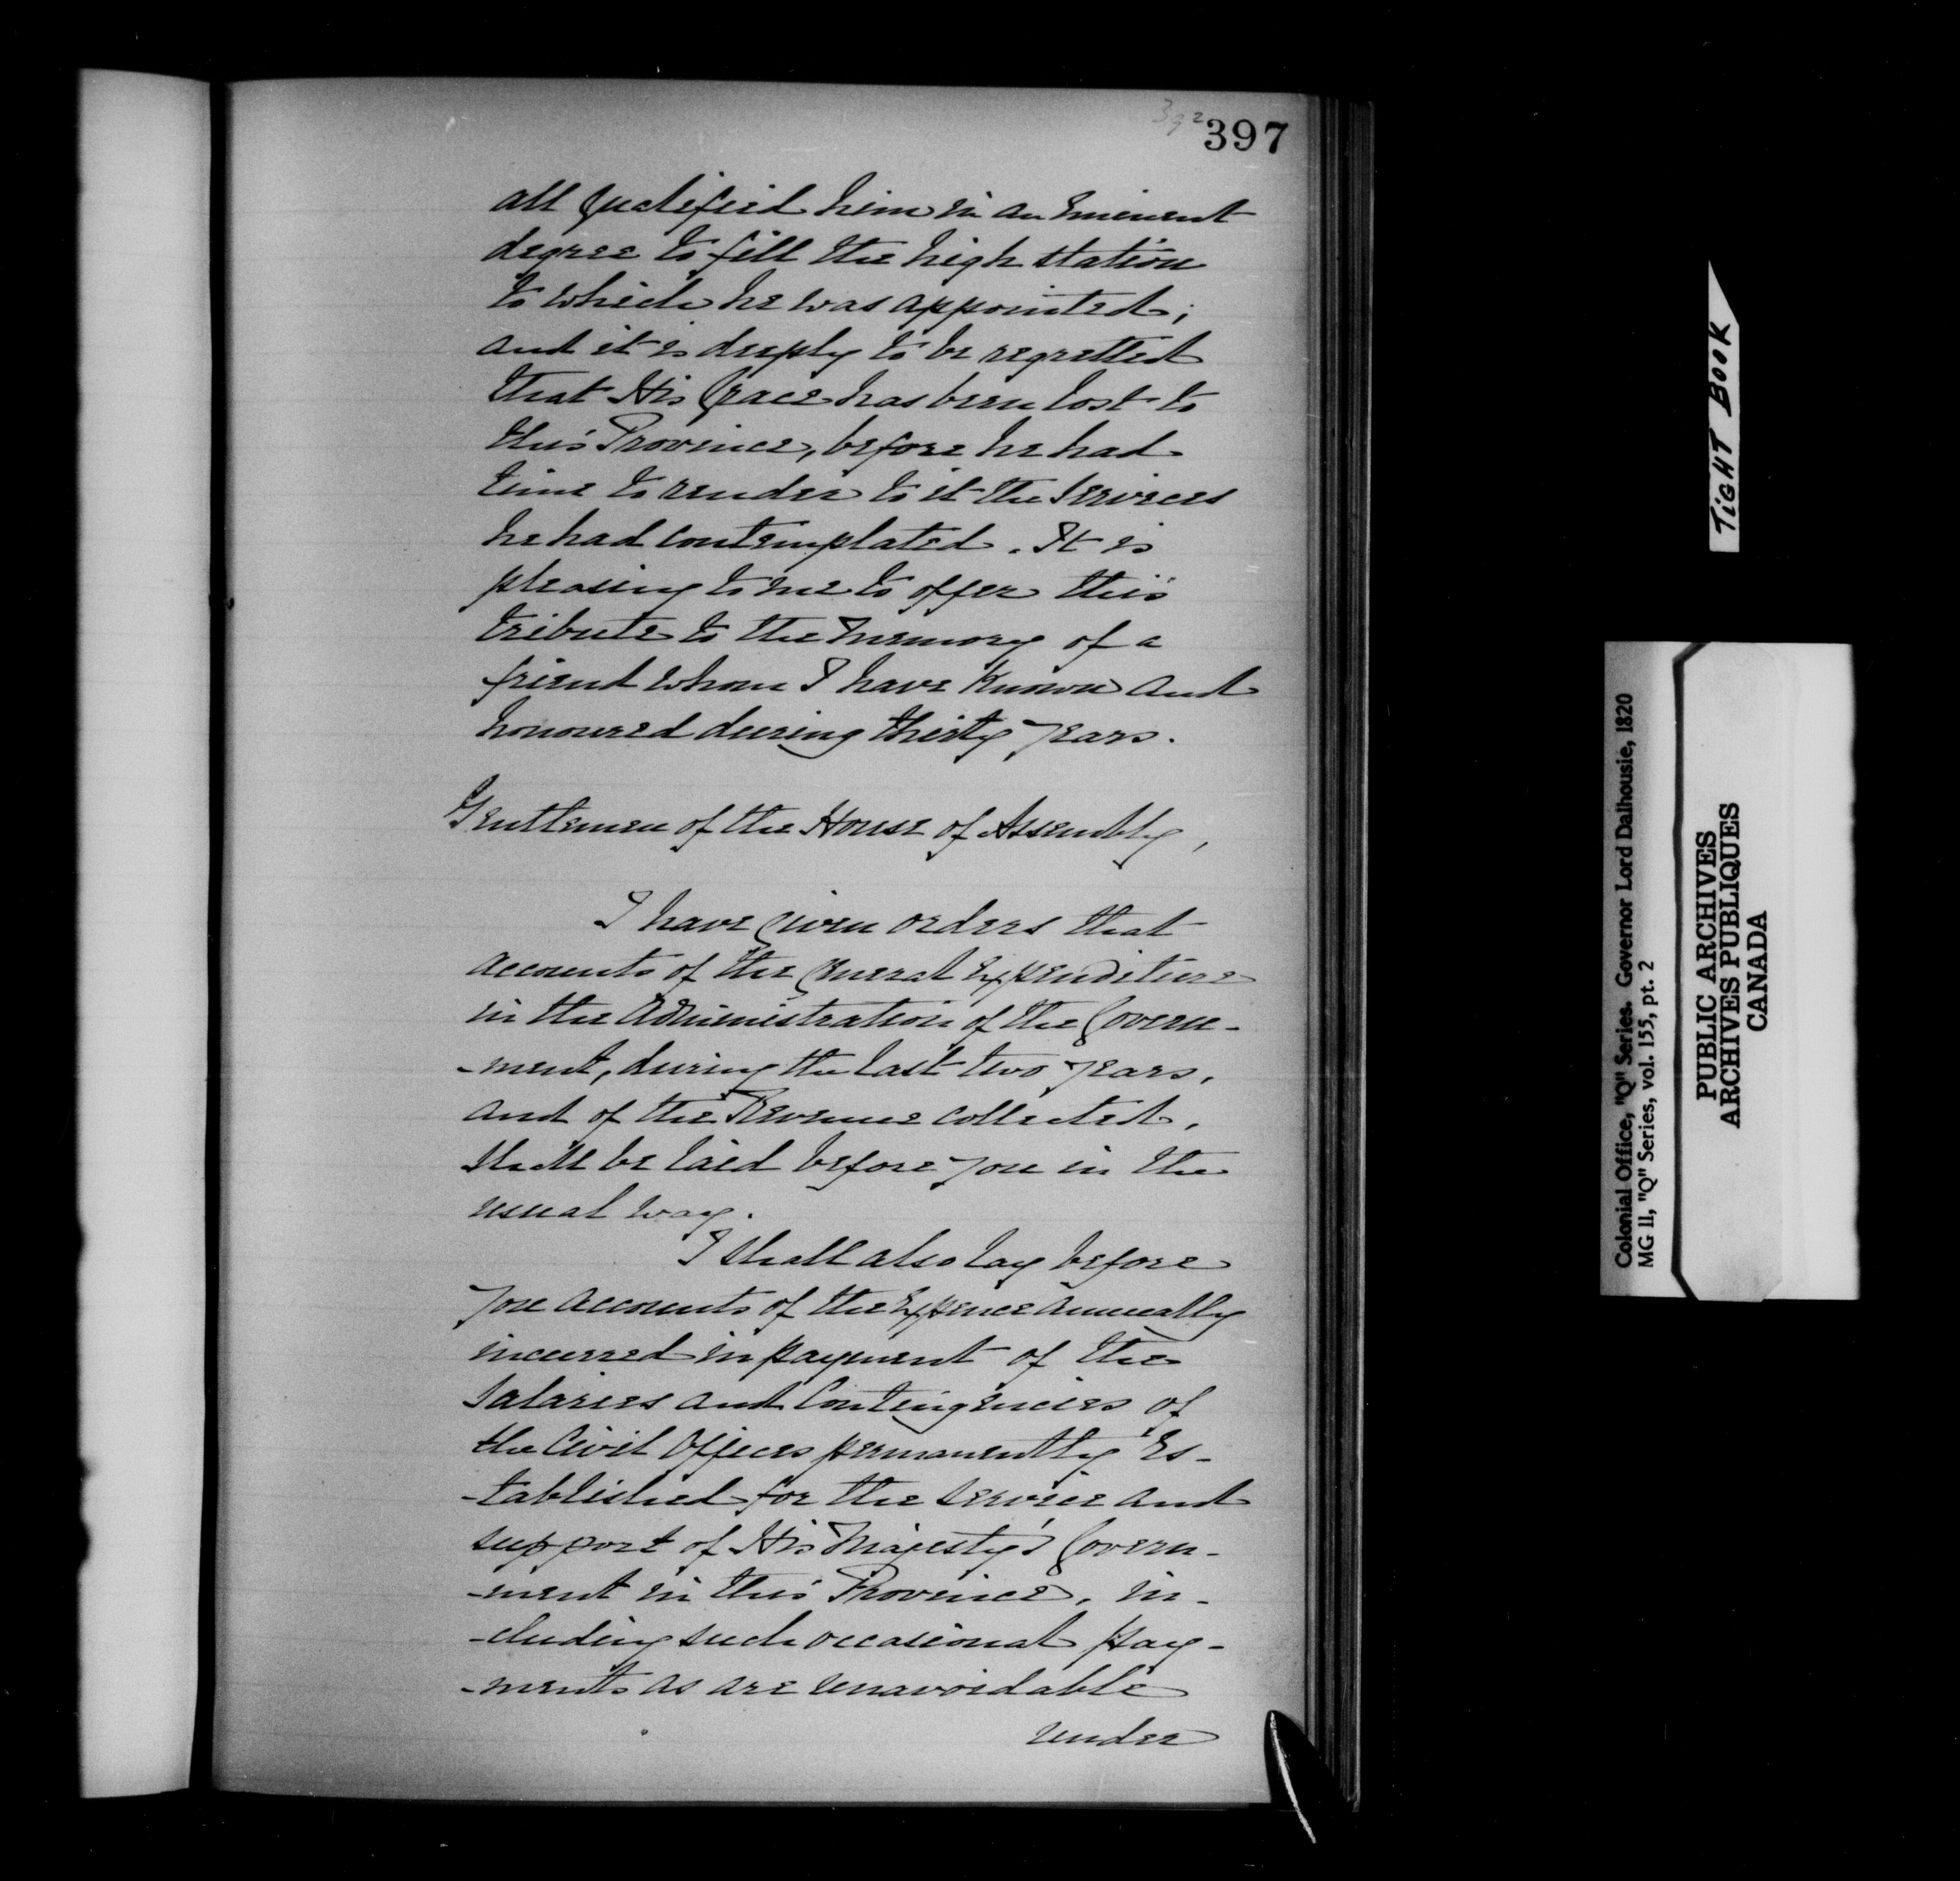 392
397
all qualified him in an Eminent
degree to fill the high station
to which he was appointed;
and it is deeply to be regretted
that His Grace has been lost to
this Province, before he had
time to render to it the Services
he had contemplated. It is
pleasing to me to offer this
tribute to the Memory of a
friend whom I have Known and
honoured during thirty years.
Gentlemen of the House of Assembly,
I have given orders that
accounts of the general Expenditure
in the Administration of the Govern-
-ment, during the last two years,
and of the Revenue collected,
shall be laid before you in the
usual way.
I shall also lay before
you accounts of the Expence annually
incurred in payment of the
Salaries and Contingencies of
the Civil Offices permanently Es-
-tablished for the Service and
support of His Majesty's Govern-
-ment in this Province, in-
-cluding such occasional pay-
-ments as are unavoidable
under
TIGHT BOOK
Colonial Office, "Q" Series. Governor Lord Dalhousie, 1820
MG 11, "Q" Series, vol. 155, pt. 2
PUBLIC ARCHIVES
ARCHIVES PUBLIQUES
CANADA